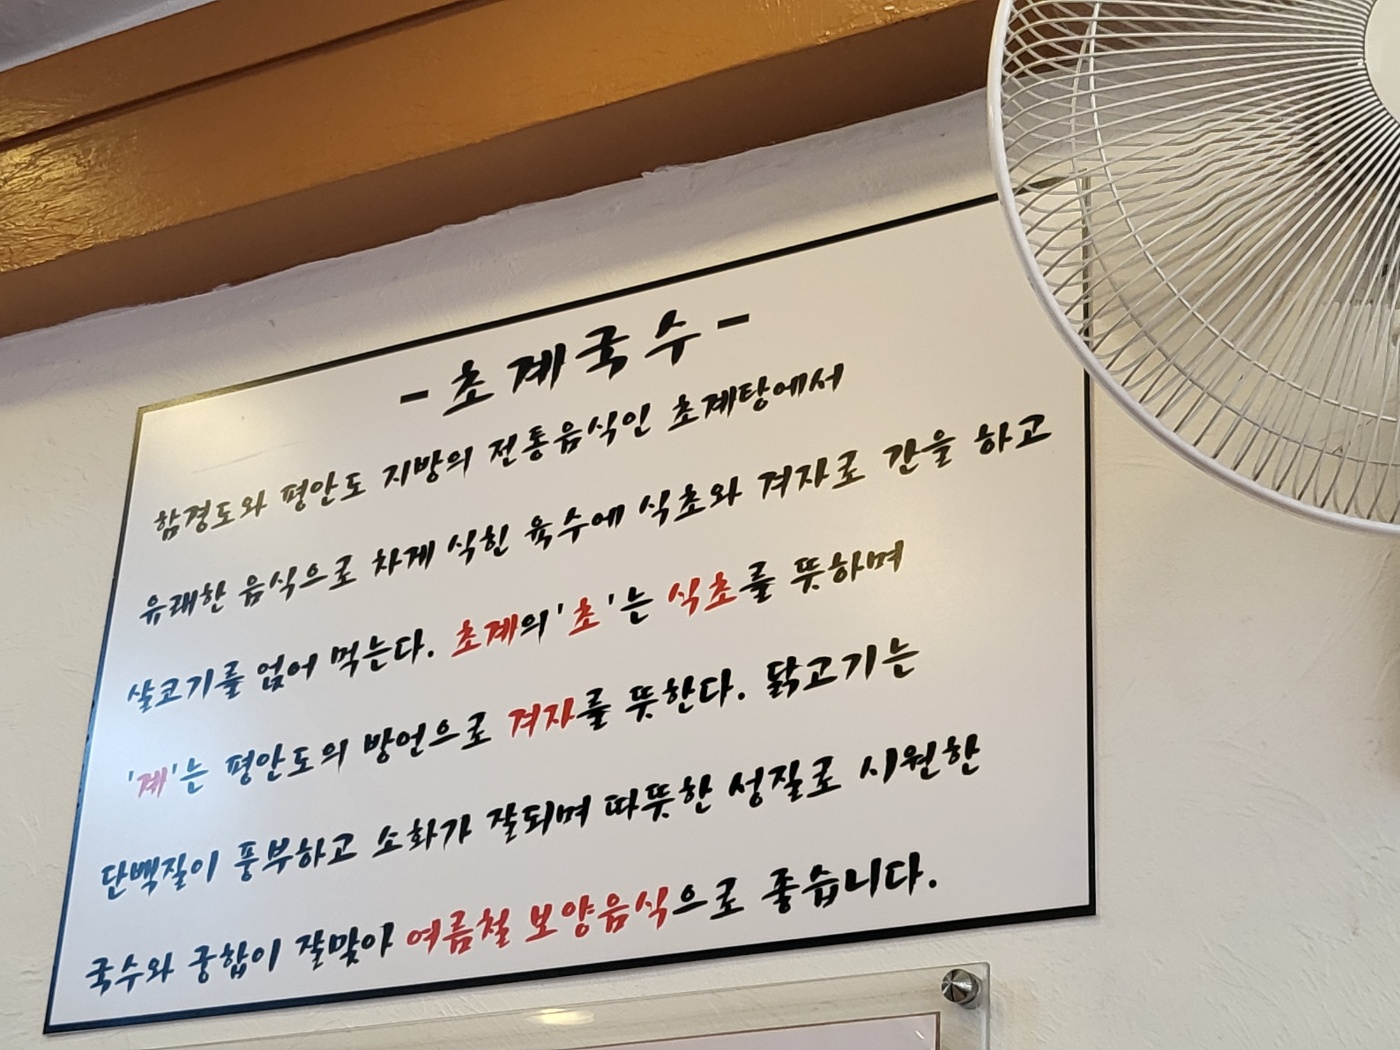 - 초계국수 -
함경도와 평안도 지방의 전통음식인 초계탕에서
유래한 음식으로 차게 식힌 육수에 식초와 겨자로 간을 하고
살코기를 얹어 먹는다. 초계의 '초'는 식초를 뜻하며
'계'는 평안도의 방언으로 겨자를 뜻한다. 닭고기는
단백질이 풍부하고 소화가 잘되며 따뜻한 성질로 시원한
국수와 궁합이 잘맞아 여름철 보양음식으로 좋습니다.